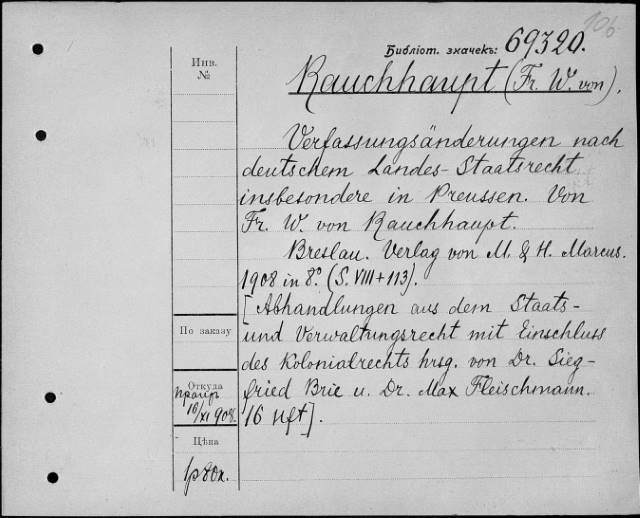 106
Библіот. значекъ: 69320.
Инв.
№
Rauchhaupt (Fr. W. von).
Verfassungsänderungen nach
deutschem Landes-Staatsrecht
insbesondere in Preussen. Von
Fr. W. von Rauchhaupt.
Breslau. Verlag von M. & H. Marcus.
1908 in 8º. (S. VIII + 113).
[Abhandlungen aus dem Staats-
und Verwaltungsrecht mit Einschluss
des Kolonialrechts hrsg. von Dr. Sieg-
fried Brie u. Dr. Max Fleischmann.
16 Hft].
По заказу
Откуда
16/XI 908.
Цѣна
1р 80к.